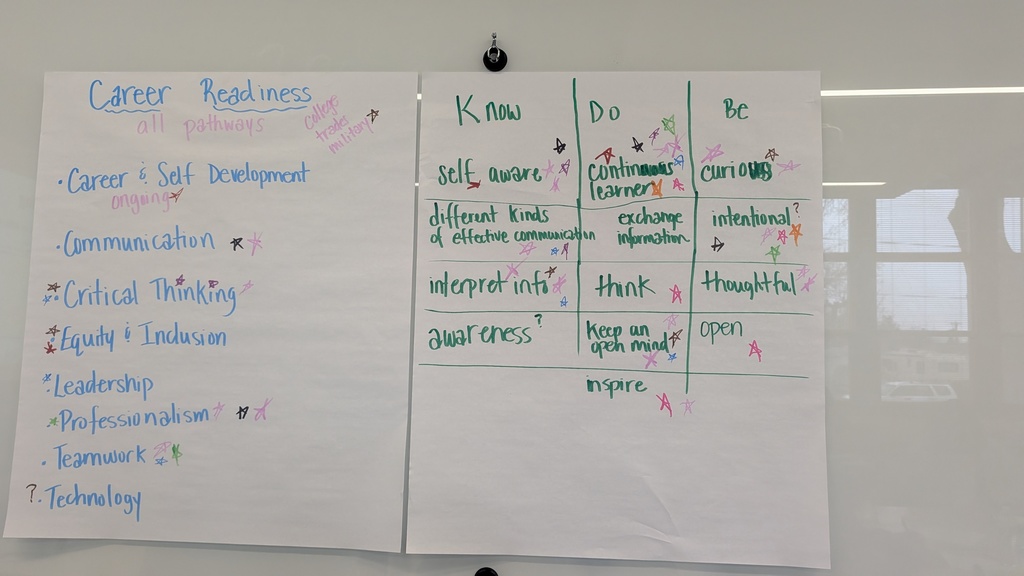 Career Readiness
all pathways
College
trades
military
· Career & Self Development
ongoing
· Communication
· Critical Thinking
· Equity & Inclusion
· Leadership
· Professionalism
· Teamwork
?. Technology
Know Do Be
self aware continuous learner curious
different kinds of effective communication exchange information intentional?
interpret info think thoughtful
awareness? Keep an open mind open
inspire